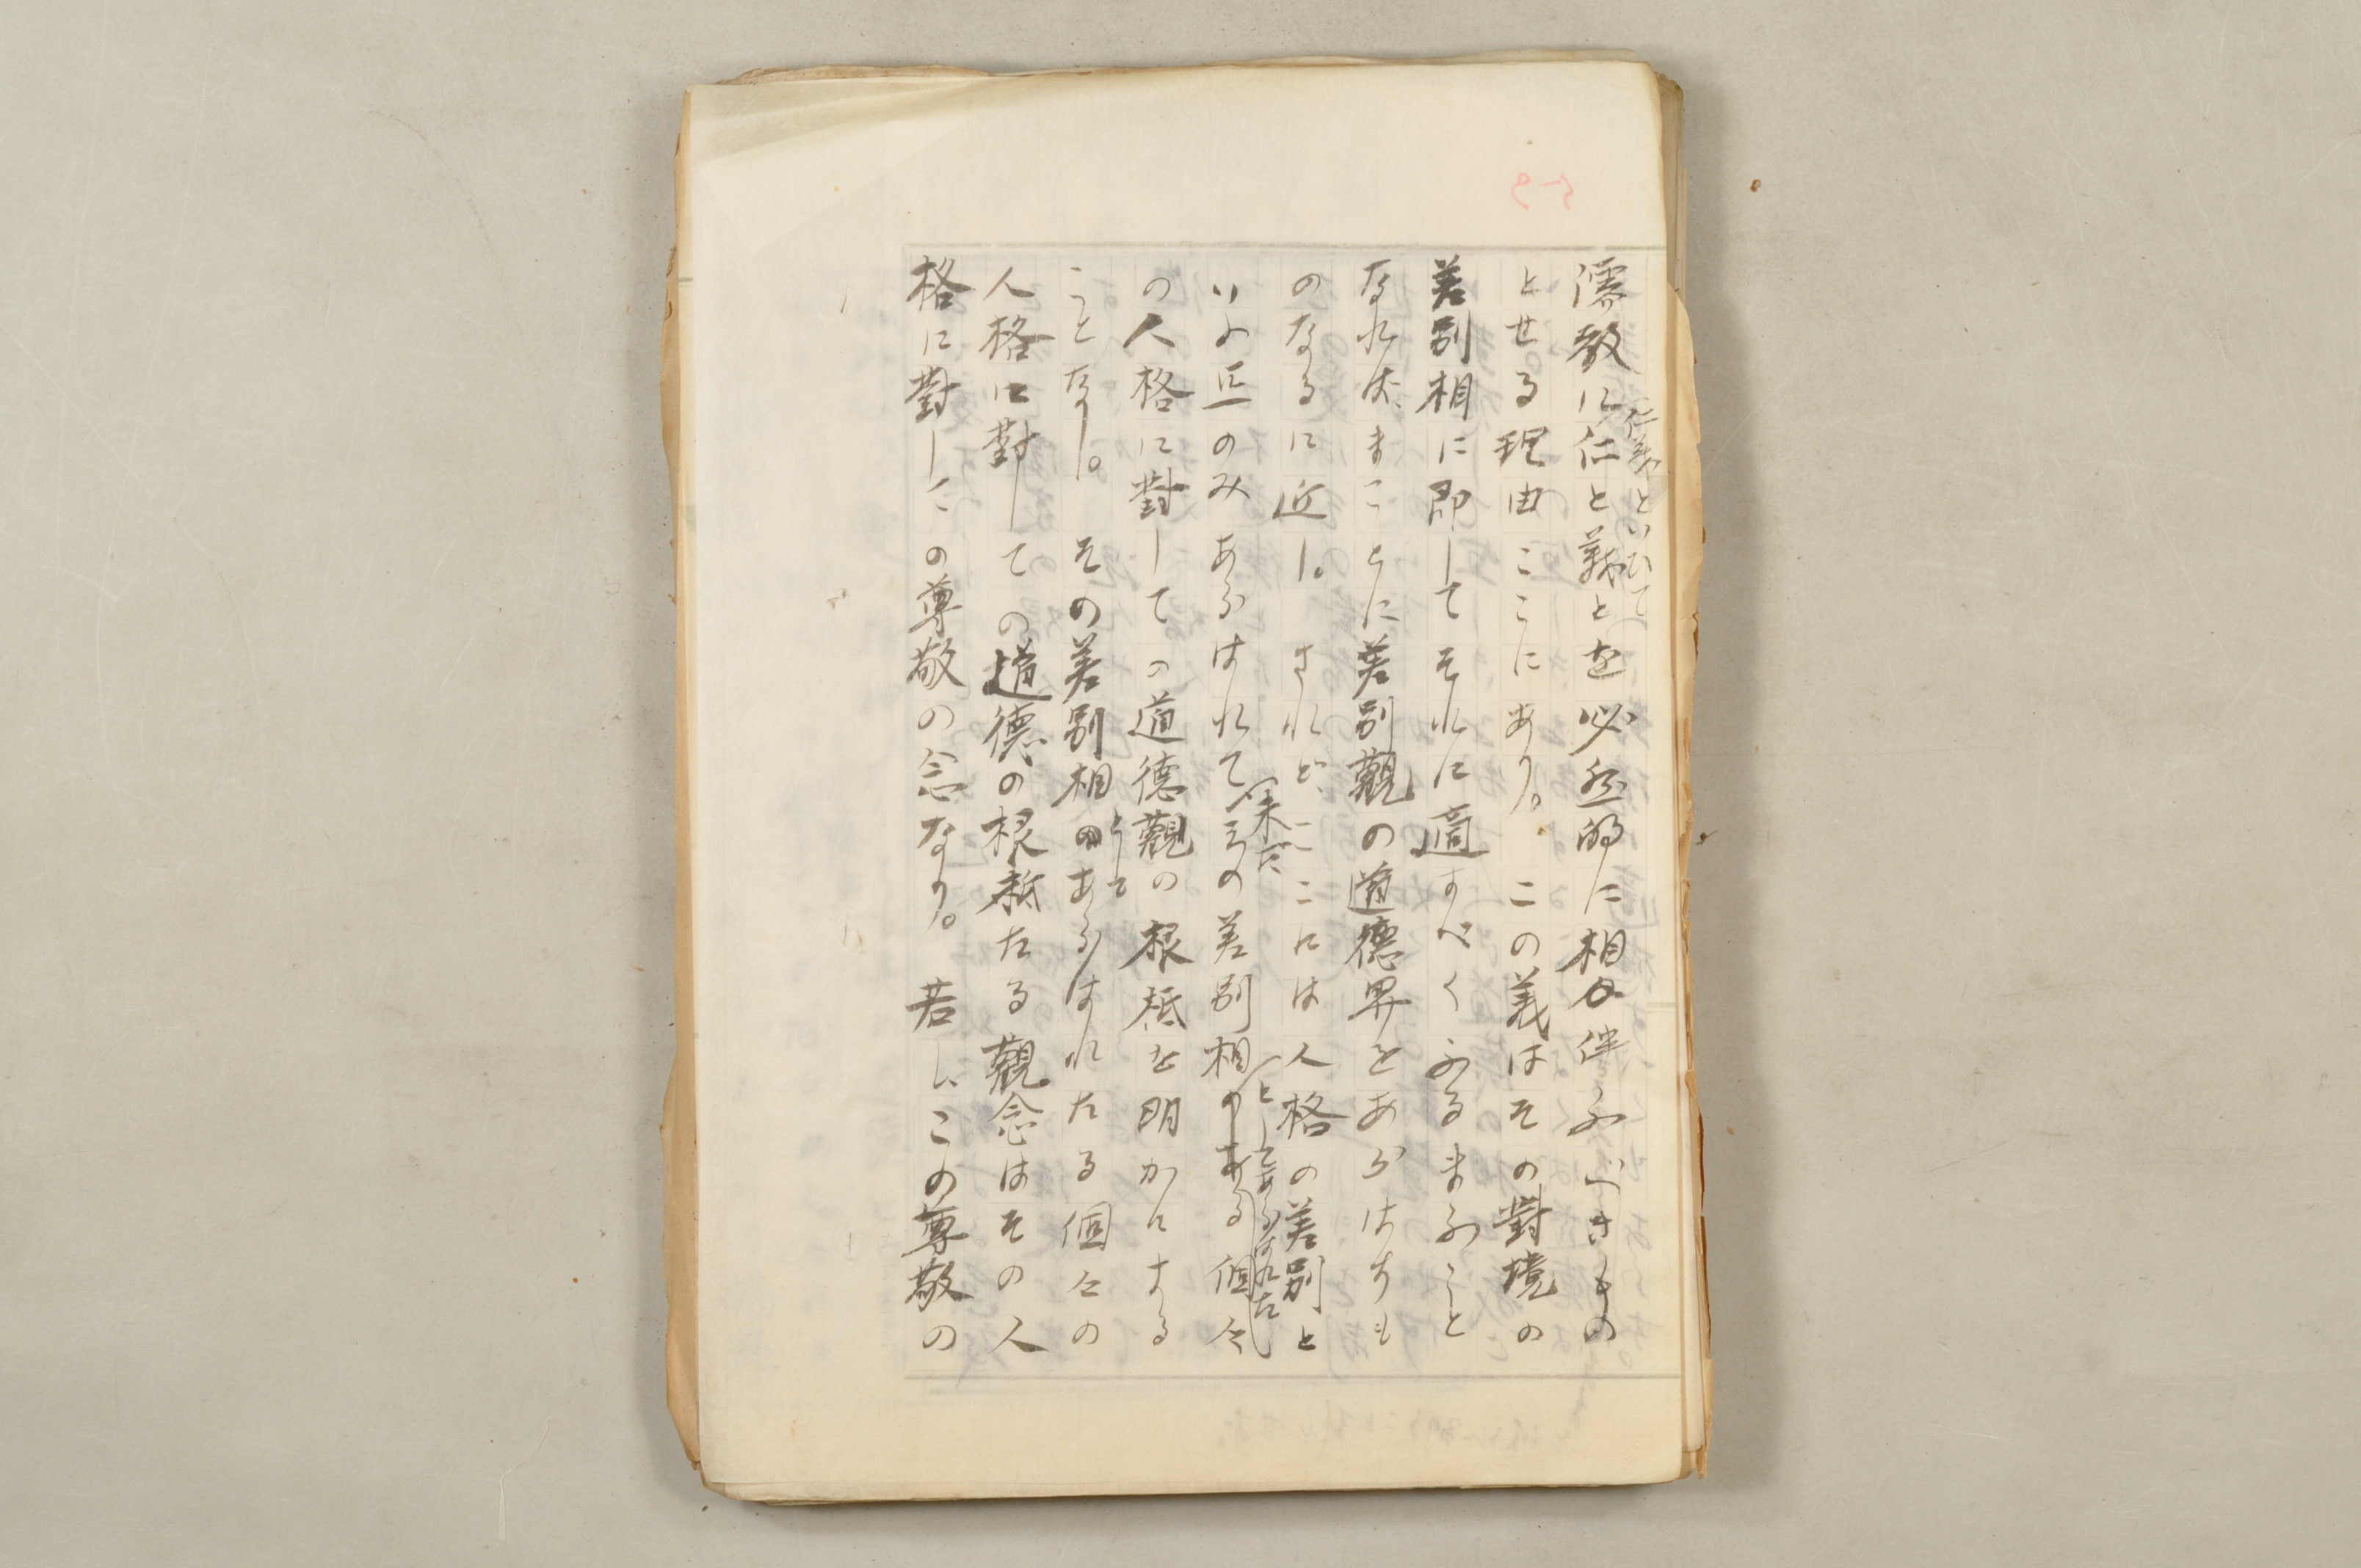 儒教に仁義といひて仁と義とを必然的に相伴ふべきもの
とせる理由ここにあり。この義はその對境の
差別相に即してそれに適すべくふるまふこと
なれば、まことに差別觀の道徳界をあらはすも
のなるに近し。されど、ここには人格の差別と
いふ事のみあらはれて未だその差別相としてあらはれたる個々
の人格に對しての道徳觀の根柢を明かにする
ことなし。その差別相としてあらはれたる個々の
人格に對しての道德の根柢たる觀念はその人
格に對しての尊敬の念なり。若しこの尊敬の